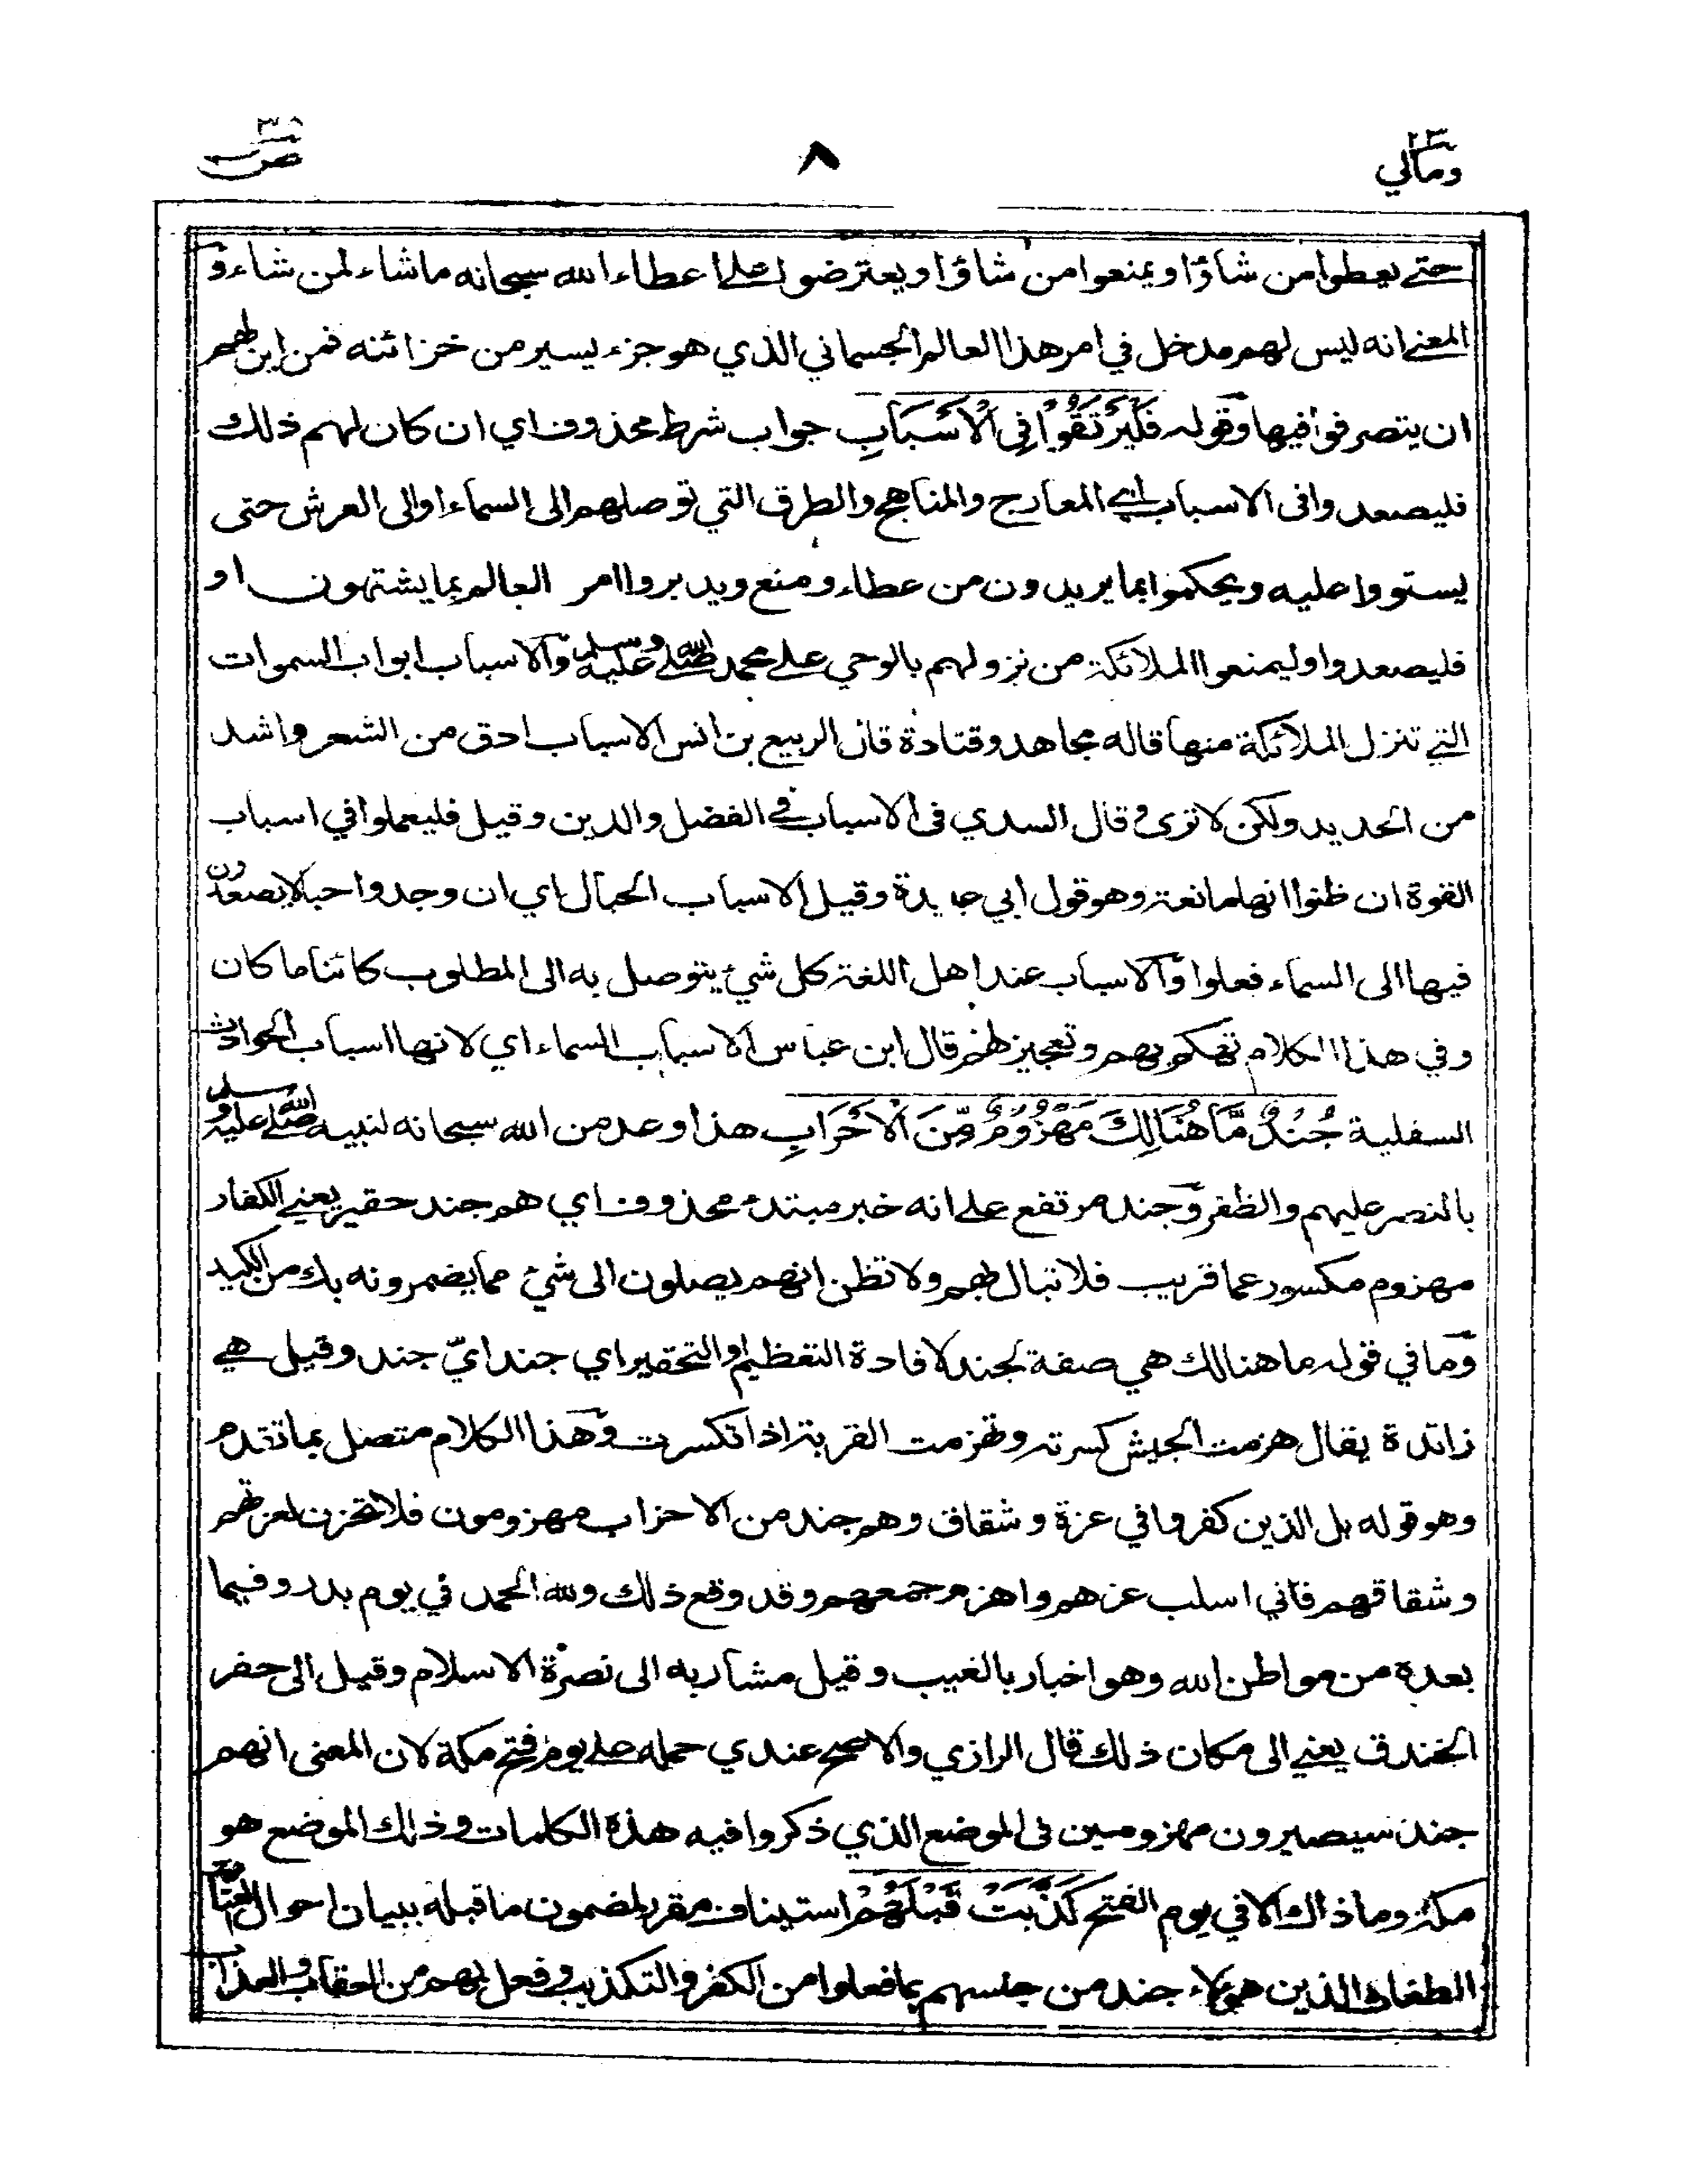 ومالي ٢٣
٨
ص ٣٨
حتى يعطوا من شاؤا ويمنعوا من شاؤا ويعترضوا على اعطاء الله سبحانه ما شاء لمن شاء و
المعنى انه ليس لهم مدخل في امر هذا العالم الجسماني الذي هو جزء يسير من خزائنه فمن اين لهم
ان يتصرفوا فيها وقوله فَلْيَرْتَقُوْا فِى الْاَسْبَابِ جواب شرط محذوف اي ان كان لهم ذلك
فليصعدوا فى الاسباب اي المعارج والمناهج والطرق التي توصلهم الى السماء او الى العرش حتى
يستووا عليه ويحكموا بما يريدون من عطاء ومنع ويدبروا امر العالم بما يشتهون او
فليصعدوا وليمنعوا الملائكة من نزولهم بالوحي على محمد صلى الله عليه وسلم والاسباب ابواب السموات
التي تنزل الملائكة منها قاله مجاهد وقتادة قال الربيع بن انس الاسباب ادق من الشعر واشد
من الحديد ولكن لا ترى و قال السدي فى الاسباب في الفضل والدين وقيل فليعملوا في اسباب
القوة ان ظنوا انها مانعة وهو قول ابي عبيدة وقيل الاسباب الحبال اي ان وجدوا حبلا يصعدون
فيها الى السماء فعلوا والاسباب عند اهل اللغة كل شئ يتوصل به الى المطلوب كائنا ما كان
وفي هذا الكلام تهكم بهم وتعجيز لهم قال ابن عباس الاسباب السماء اي لانها اسباب الحوادث
السفلية جُنْدٌ مَّا هُنَالِكَ مَهْزُوْمٌ مِّنَ الْاَحْزَابِ هذا وعد من الله سبحانه لنبيه صلى الله عليه وسلم
بالنصر عليهم والظفر وجند مرتفع على انه خبر مبتدء محذوف اي هم جند حقير يعني الكفار
مهزوم مكسور عما قريب فلا تبال بهم ولا تظن انهم يصلون الى شئ مما يضمرونه بك من الكيد
وما في قوله ما هنالك هي صفة لجند لافادة التعظيم او التحقير اي جند ايّ جند وقيل هي
زائدة يقال هزمت الجيش كسرته وتهزمت القربة اذا تكسرت وهذا الكلام متصل بما تقدم
وهو قوله بل الذين كفروا في عزة وشقاق وهم جند من الاحزاب مهزومون فلا تحزن لعزتهم
وشقاقهم فاني اسلب عزهم واهزم جمعهم وقد وقع ذلك ولله الحمد في يوم بدر وفيما
بعده من مواطن الله وهو اخبار بالغيب وقيل مشار به الى نصرة الاسلام وقيل الى حفر
الخندق يعني الى مكان ذلك قال الرازي والاصح عندي حمله على يوم فتح مكة لان المعنى انهم
جند سيصيرون مهزومين فى الموضع الذي ذكروا فيه هذه الكلمات وذلك الموضع هو
مكة وما ذاك الا في يوم الفتح كَذَّبَتْ قَبْلَهُمْ استيناف مقرر لمضمون ما قبله ببيان احوال العتاة
الطغاة الذين هؤلاء جند من جنسهم بما فعلوا من الكفر والتكذيب وفعل بهم من العقاب والعذاب